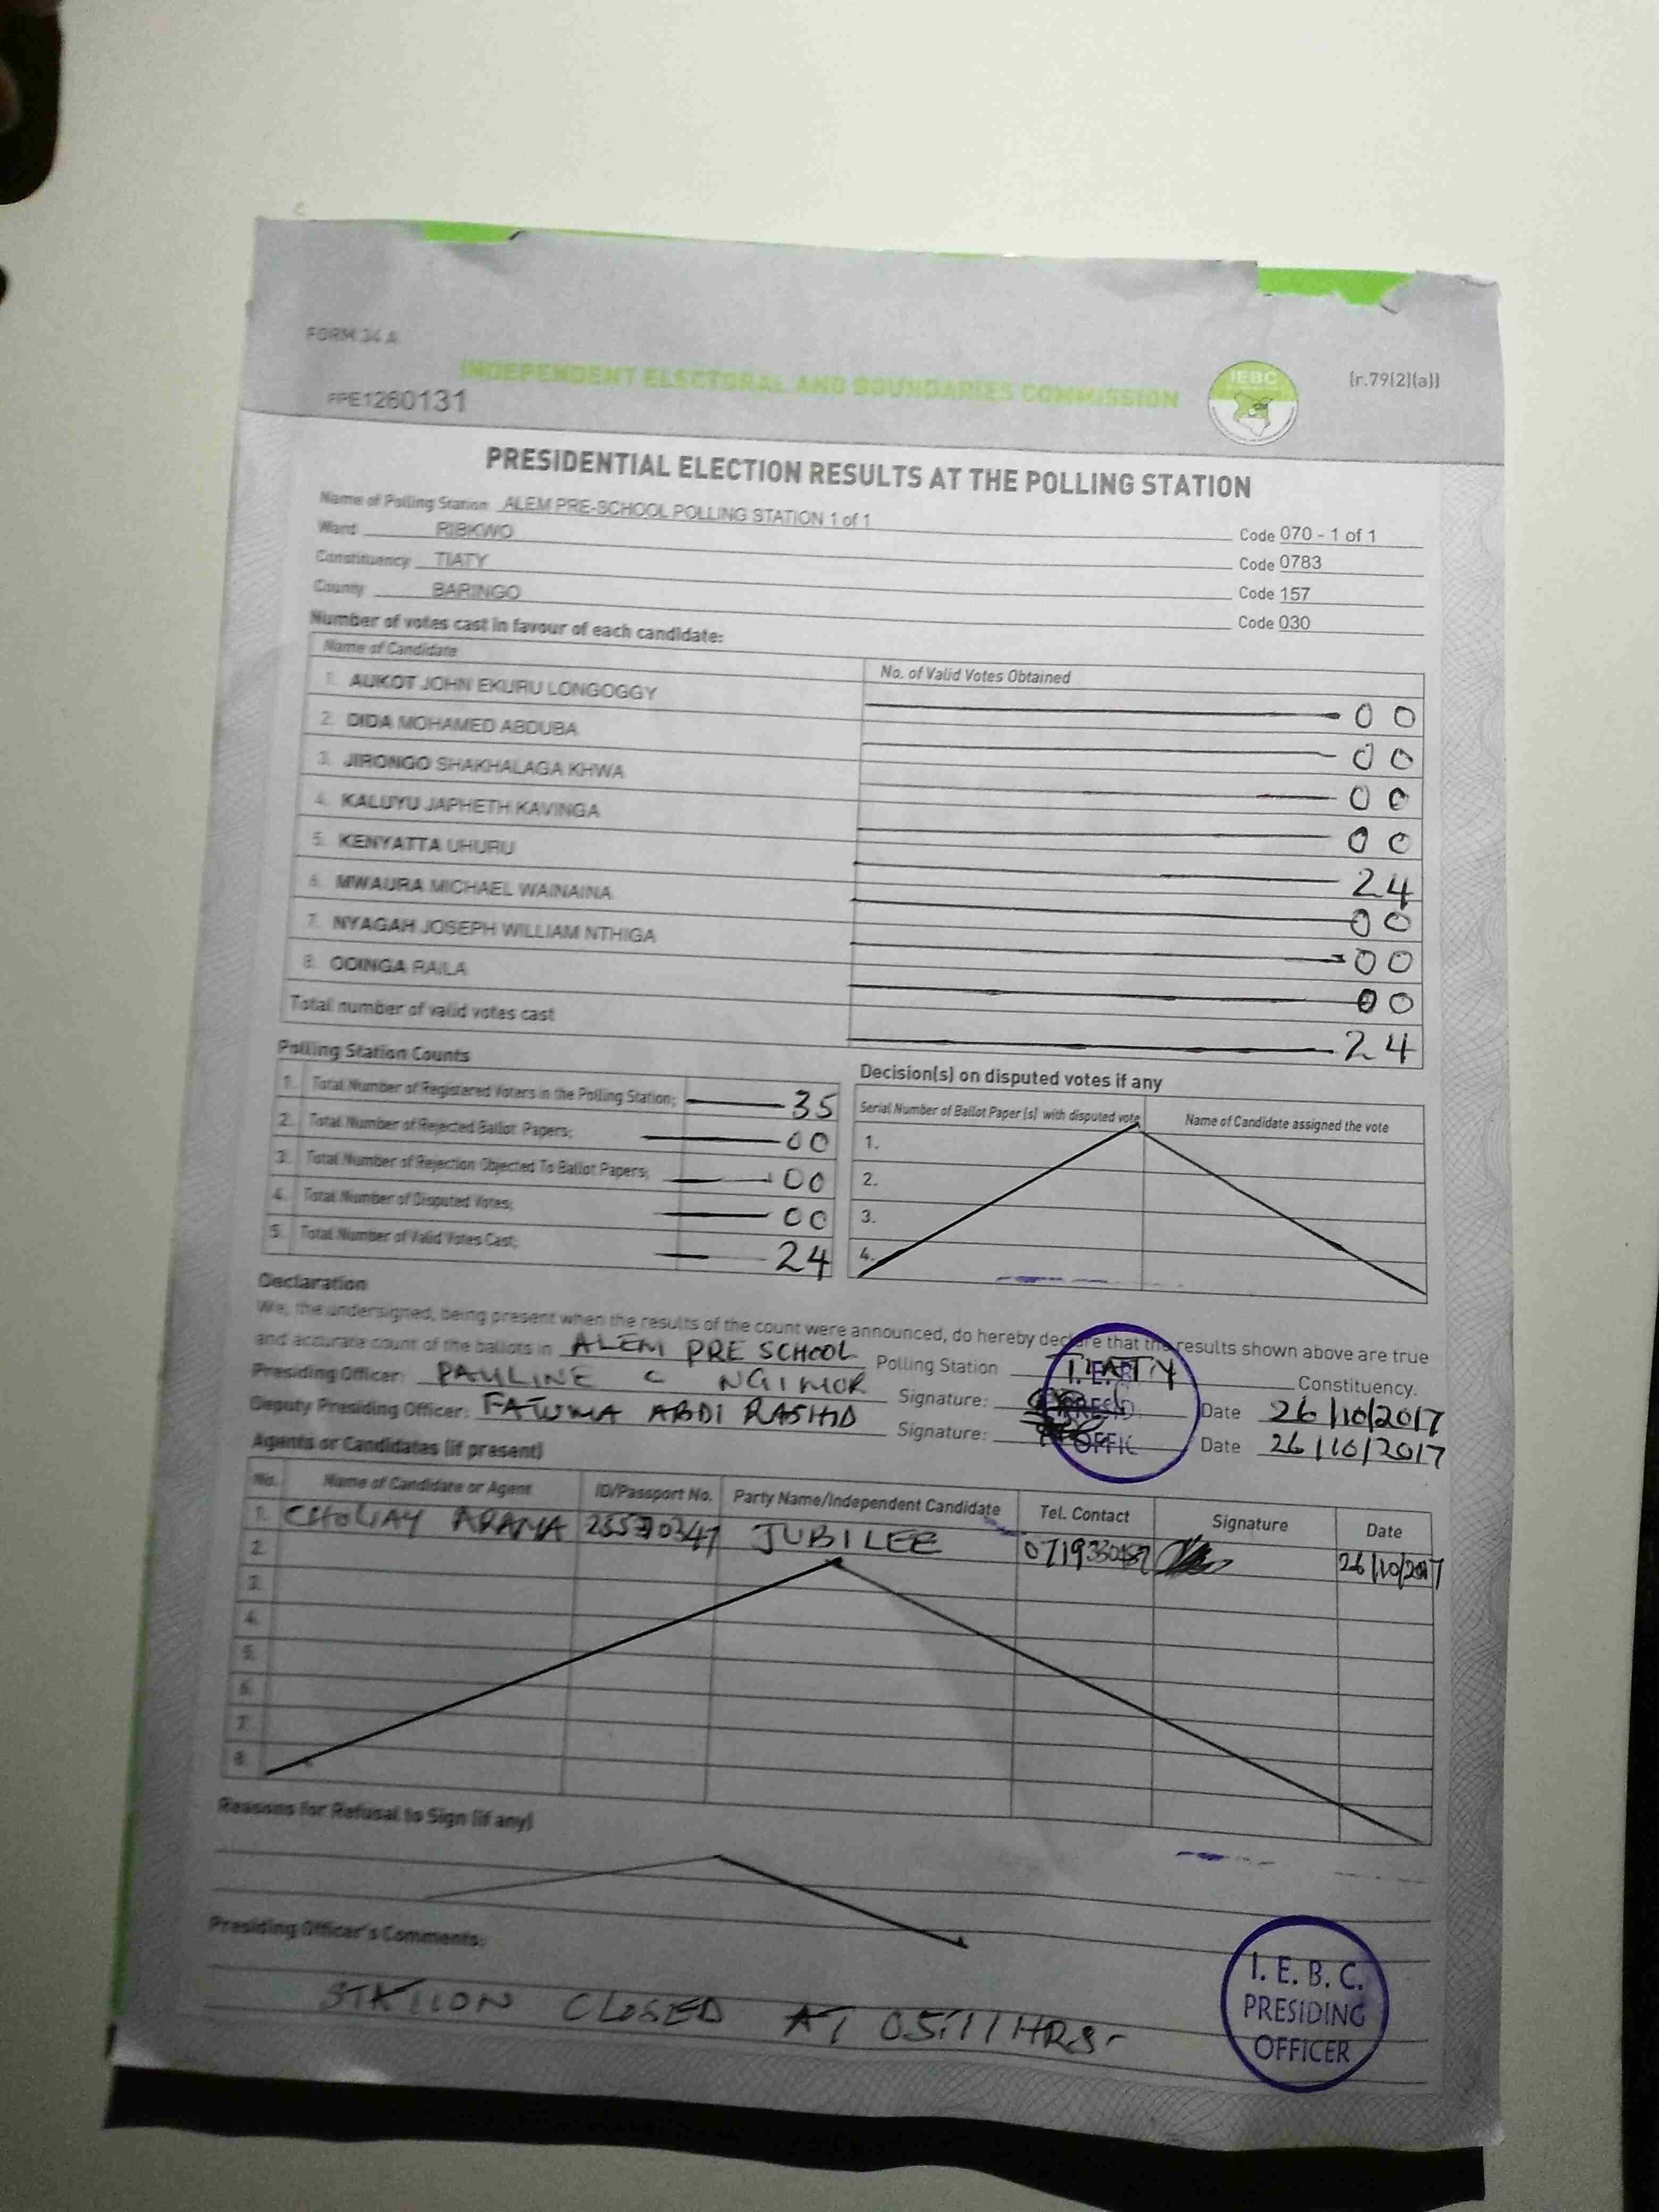 FORM 34 A
INDEPENDENT ELECTORAL AND BOUNDARIES COMMISSION
IEBC
(r.79(2)(a))
FPE1260131
PRESIDENTIAL ELECTION RESULTS AT THE POLLING STATION
Name of Polling Station ALEM PRE-SCHOOL POLLING STATION 1 of 1 Code 070 - 1 of 1
Ward RIBKWO Code 0783
Constituency TIATY Code 157
County BARINGO Code 030
Number of votes cast in favour of each candidate:
Name of Candidate No. of Valid Votes Obtained
1. AUKOT JOHN EKURU LONGOGGY 00
2. DIDA MOHAMED ABDUBA 00
3. JIRONGO SHAKHALAGA KHWA 00
4. KALUYU JAPHETH KAVINGA 00
5. KENYATTA UHURU 24
6. MWAURA MICHAEL WAINAINA 00
7. NYAGAH JOSEPH WILLIAM NTHIGA 00
8. ODINGA RAILA 00
Total number of valid votes cast 24
Polling Station Counts
1. Total Number of Registered Voters in the Polling Station; 35
2. Total Number of Rejected Ballot Papers; 00
3. Total Number of Rejection Objected To Ballot Papers; 00
4. Total Number of Disputed Votes; 00
5. Total Number of Valid Votes Cast; 24
Decision(s) on disputed votes if any
Serial Number of Ballot Paper (s) with disputed vote Name of Candidate assigned the vote
1.
2.
3.
4.
Declaration
We, the undersigned, being present when the results of the count were announced, do hereby declare that the results shown above are true
and accurate count of the ballots in ALEM PRE SCHOOL Polling Station TIATY Constituency.
Presiding Officer: PAULINE C NGIMOR Signature: Date 26/10/2017
Deputy Presiding Officer: FATUMA ABDI RASHID Signature: Date 26/10/2017
Agents or Candidates (if present)
No. Name of Candidate or Agent ID/Passport No. Party Name/Independent Candidate Tel. Contact Signature Date
1. ARAMA JUBILEE 26/10/2017
2.
3.
4.
5.
6.
7.
8.
Reasons for Refusal to Sign (if any)
Presiding Officer's Comments:
STATION CLOSED AT 05:11HRS-
I. E. B. C.
PRESIDING
OFFICER